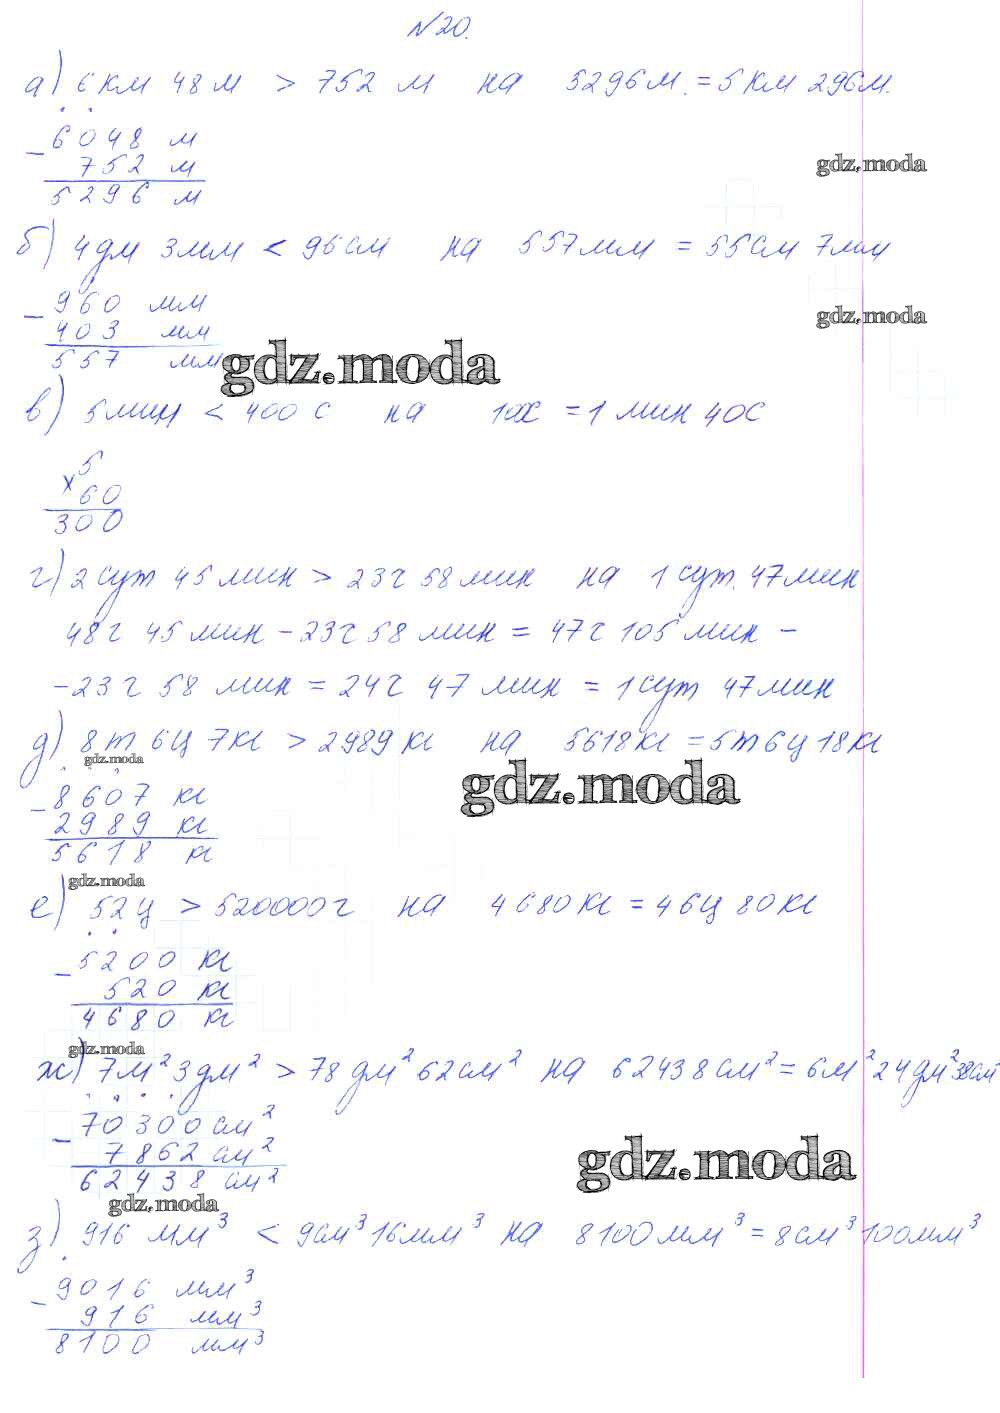 №20.
а) 6 км 48 м > 752 м на 5296 м. = 5 км 296 м.
− 6048 м
gdz.moda
752 м
5296 м
б) 4 дм 3 мм < 96 см на 557 мм = 55 см 7 мм
− 960 мм
gdz.moda
403 мм
557 мм
gdz.moda
в) 5 мин < 400 с на 100с = 1 мин 40 с
5
× 60
300
г) 2 сут 45 мин > 23 ч 58 мин на 1 сут. 47 мин
48 ч 45 мин − 23 ч 58 мин = 47 ч 105 мин −
− 23 ч 58 мин = 24 ч 47 мин = 1 сут 47 мин
д) 8 т 6 ц 7 кг > 2989 кг на 5618 кг = 5 т 6 ц 18 кг
gdz.moda
gdz.moda
− 8607 кг
2989 кг
5618 кг
gdz.moda
е) 52 ц > 520000 г на 4680 кг = 46 ц 80 кг
− 5200 кг
520 кг
4680 кг
gdz.moda
ж) 7 м² 3 дм² > 78 дм² 62 см² на 62438 см² = 6 м² 24 дм² 38 см²
− 70300 см²
7862 см²
gdz.moda
62438 см²
gdz.moda
з) 916 мм³ < 9 см³ 16 мм³ на 8100 мм³ = 8 см³ 100 мм³
− 9016 мм³
916 мм³
8100 мм³